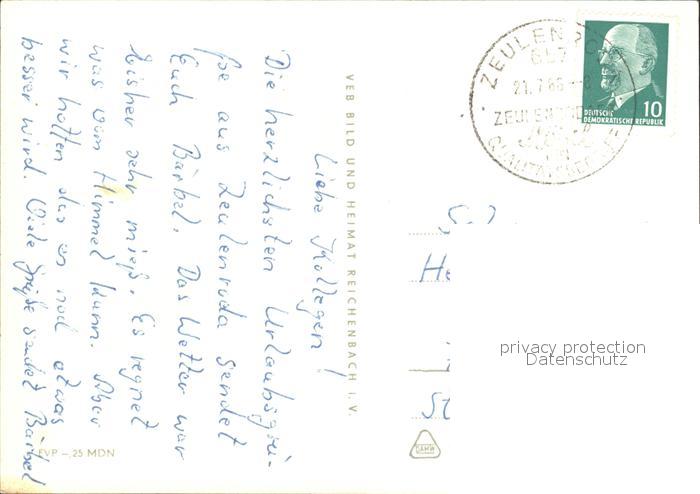 Liebe Kollegen!
Die herzlichsten Urlaubsgrü-
ße aus Zeulenroda sendet
Euch Bärbel. Das Wetter war
bisher sehr mieß. Es regnet
was vom Himmel kann. Aber
wir hoffen das es noch etwas
besser wird. Viele Grüße sendet Bärbel
EVP –,25 MDN
VEB BILD UND HEIMAT REICHENBACH I. V.
ZEULENRODA
21.7.66
ZEULENRODAER
DEUTSCHE
DEMOKRATISCHE REPUBLIK
10
He
privacy protection
Datenschutz